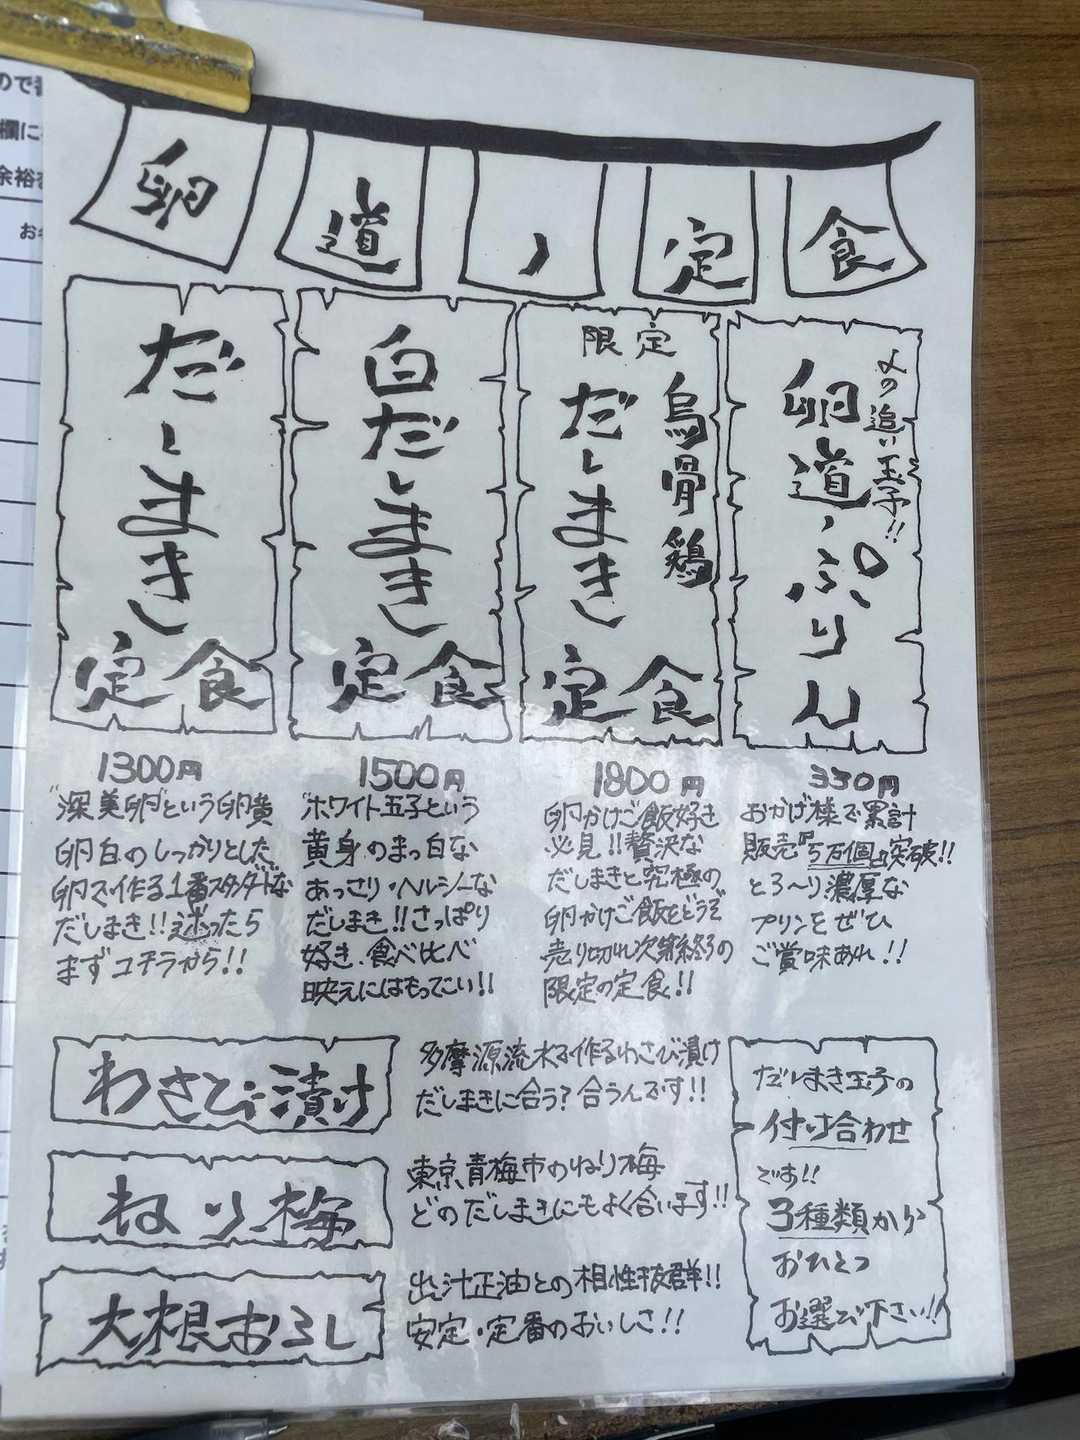 ので
欄に
余裕
お
卵道ノ定食
だしまき
定食
白だしまき
定食
限定
烏骨鶏
だしまき
定食
〆の追い玉子!!
卵道ノぷりん
1300円
"深美卵"という卵黄
卵白のしっかりとした
卵で作る1番スタンダードな
だしまき!!迷ったら
まずコチラから!!
1500円
"ホワイト玉子という
黄身のまっ白な
あっさり・ヘルシーな
だしまき!!さっぱり
好き、食べ比べ
映えにはもってこい!!
1800円
卵かけご飯好き
必見!!贅沢な
だしまきと究極の
卵かけご飯をどうぞ
売り切れ次第終了の
限定の定食!!
350円
おかげ様で累計
販売『5万個』突破!!
とろ〜り濃厚な
プリンをぜひ
ご賞味あれ!!
わさび漬け
多摩源流水で作るわさび漬け
だしまきに合う?合うんです!!
ねり梅
東京青梅市のねり梅
どのだしまきにもよく合います!!
大根おろし
出汁正油との相性抜群!!
安定・定番のおいしさ!!
だしまき玉子の
付け合わせ
です!!
3種類から
おひとつ
お選び下さい!!